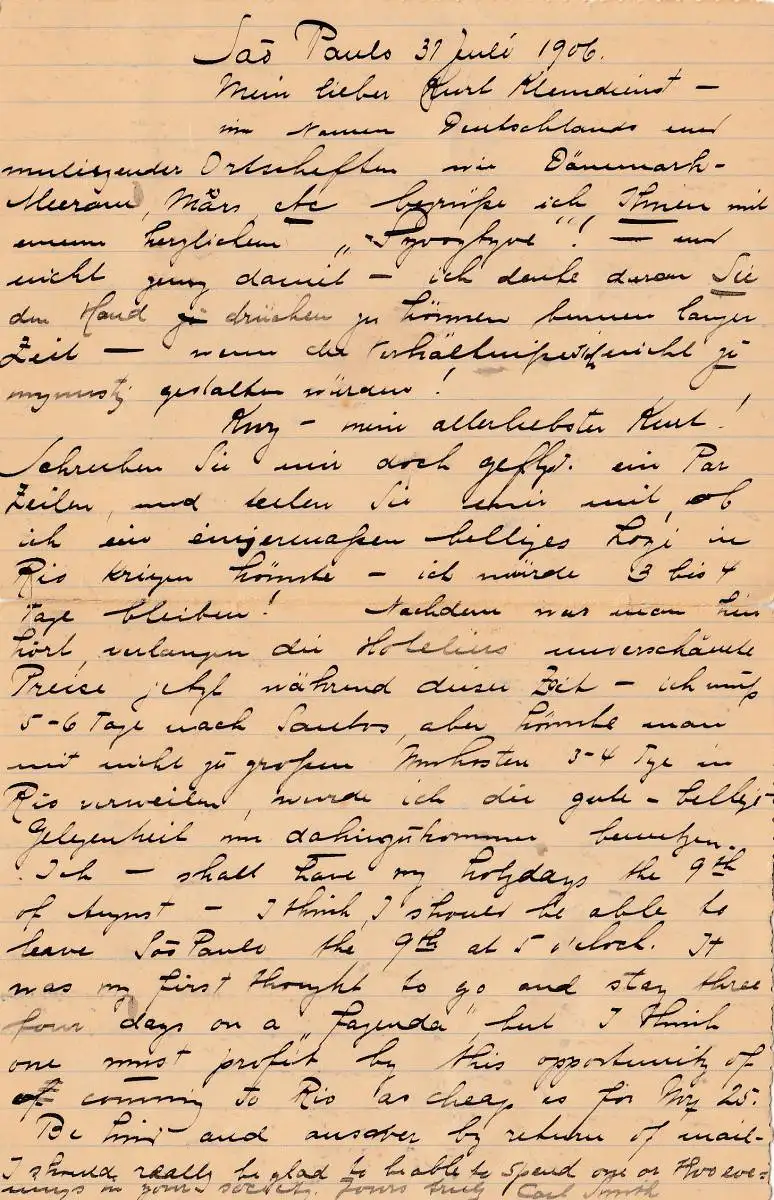 São Paulo 31 Juli 1906.
Mein lieber Kurt Kleindienst –
im Namen Deutschlands und
umliegender Ortscheften wie Dänemark –
Meerane, Mårs, etc begrüße ich Ihnen mit
einem herzlichen „ “! – und
nicht genug damit – ich denke daran Sie
den Hand zu drücken zu können binnen langer
Zeit – wenn die Verhältniße sich nicht zu
ungünstig gestalten würden!
Kurz – mein allerliebster Kurt!
Schreiben Sie mir doch geflgt. ein Par
Zeilen, und teilen Sie mir mit, ob
ich ein einigermaßen billiges Logi in
Rio kriegen könnte – ich würde 3 bis 4
Tage bleiben! Nachdem was man hier
hört, verlangen die Hoteliers unverschämte
Preise jetzt während dieser Zeit – ich muß
5-6 Tage nach Santos, aber könnte man
mit nicht zu großen Unkosten 3-4 Tge in
Rio verweilen, wurde ich die gute – billige
Gelegenheit um dahinzukommen benutzen.
Ich – shall have my holydays the 9th
of August – I think, I should be able to
leave São Paulo the 9th at 5 o'clock. It
was my first thought to go and stay three
four days on a „fazenda“, but I think
one must profit by this opportunity of
of comming to Rio as cheap as for 25.
Be kind and answer by return of mail –
I should really be glad to be able to spend one or two eve=
nings in your society. Yours truly Carl Smith